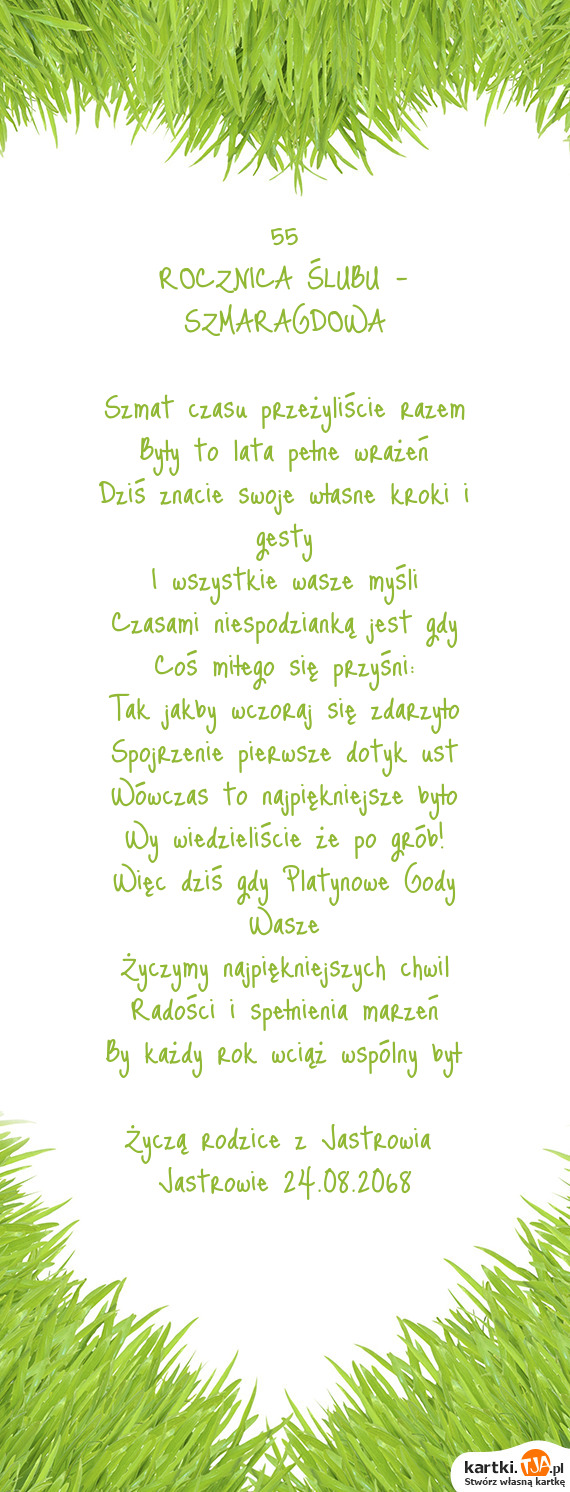 55
ROCZNICA ŚLUBU -
SZMARAGDOWA
Szmat czasu przeżyliście razem
Były to lata pełne wrażeń
Dziś znacie swoje własne kroki i
gesty
I wszystkie wasze myśli
Czasami niespodzianką jest gdy
Coś miłego się przyśni:
Tak jakby wczoraj się zdarzyło
Spojrzenie pierwsze dotyk ust
Wówczas to najpiękniejsze było
Wy wiedzieliście że po grób!
Więc dziś gdy Platynowe Gody
Wasze
Życzymy najpiękniejszych chwil
Radości i spełnienia marzeń
By każdy rok wciąż wspólny był
Życzą rodzice z Jastrowia
Jastrowie 24.08.2068
kartki.TJA.pl
Stwórz własną kartkę